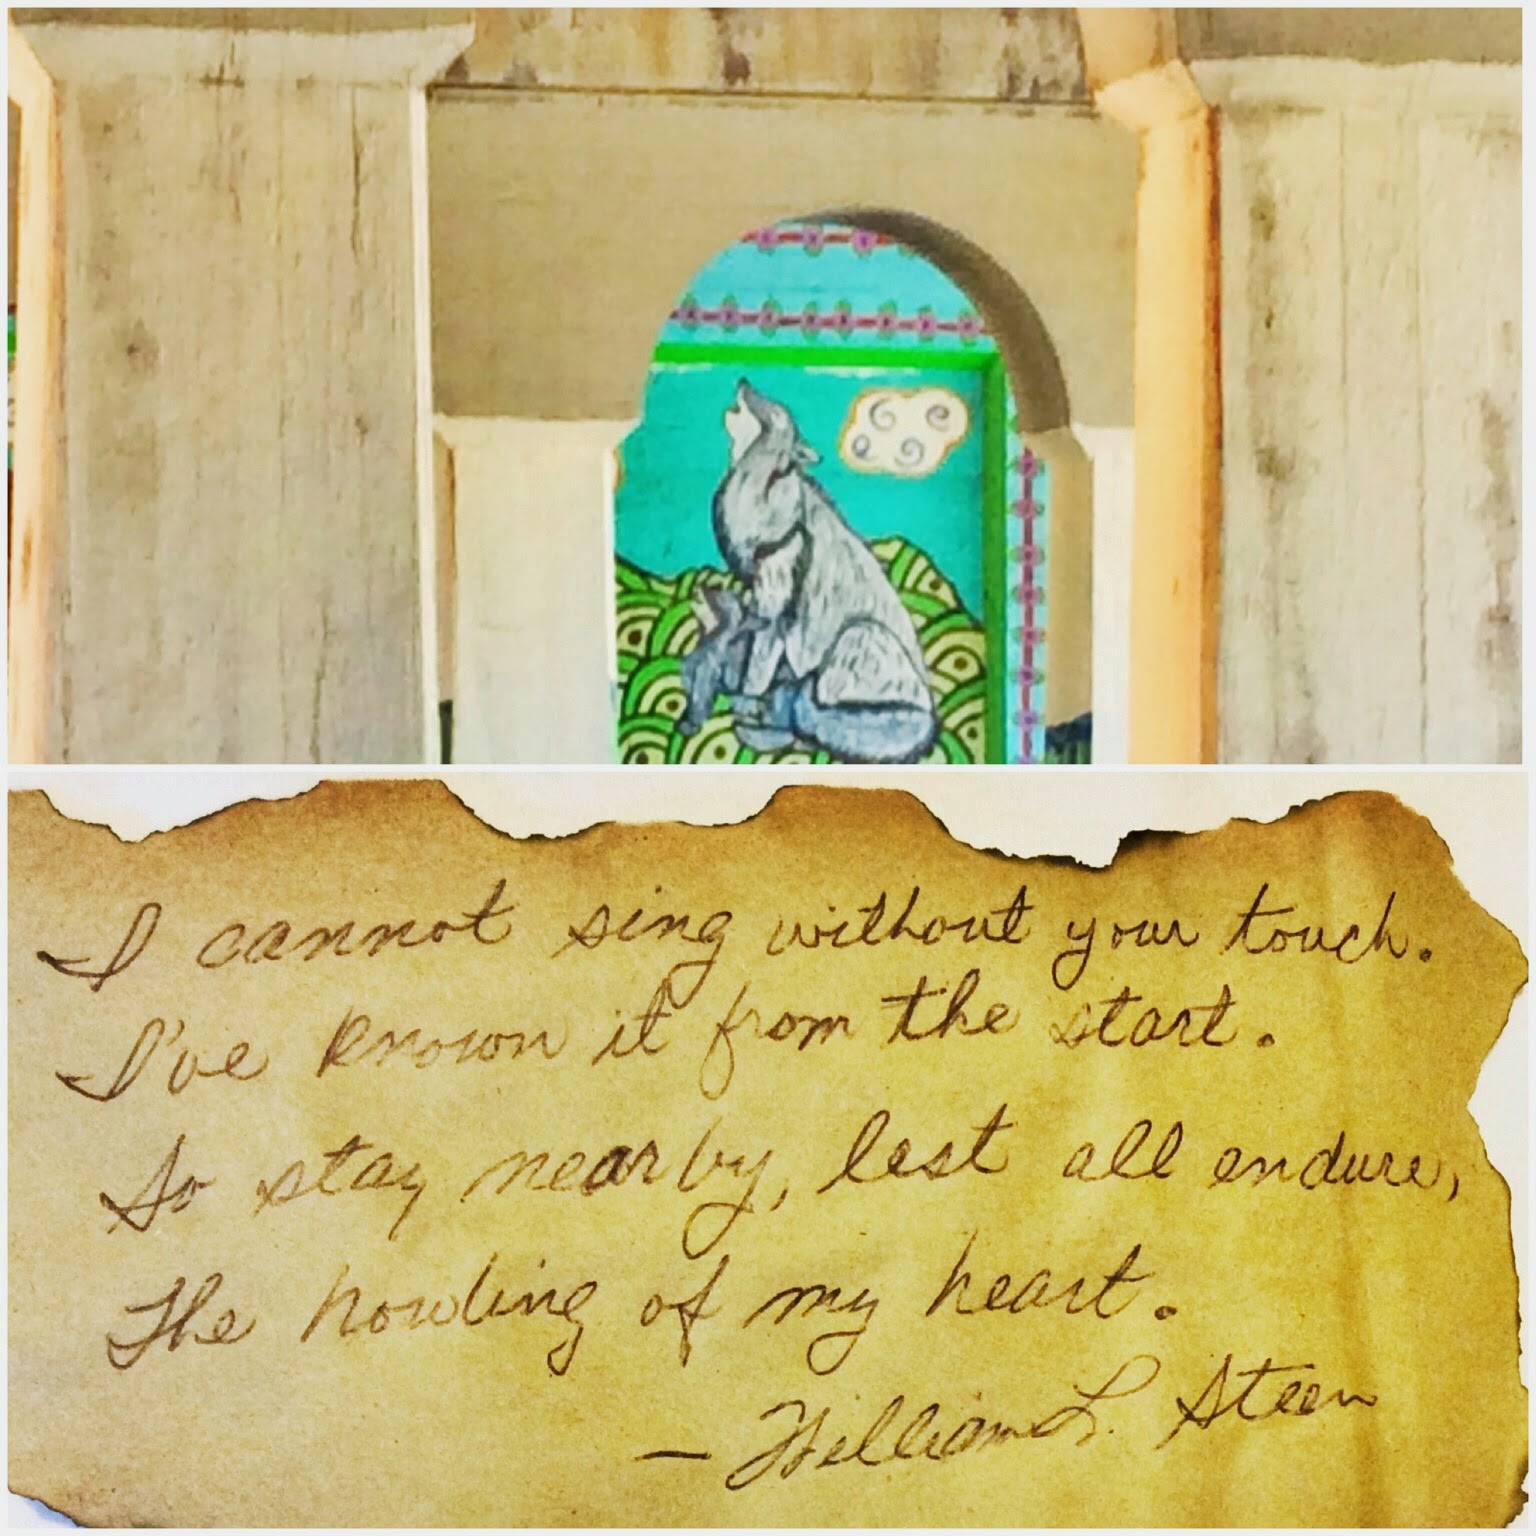 I cannot sing without your touch.
I've known it from the start.
So stay nearby, lest all endure,
The howling of my heart.
— William L. Steen